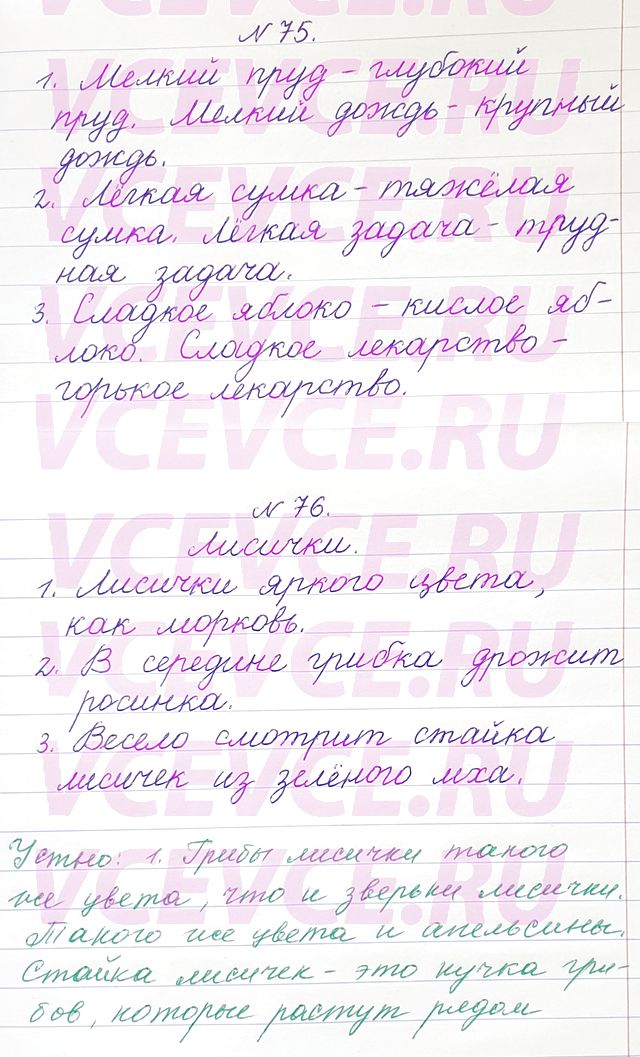 № 75.
1. Мелкий пруд – глубокий
пруд. Мелкий дождь – крупный
дождь.
2. Лёгкая сумка – тяжёлая
сумка. Лёгкая задача – труд-
ная задача.
3. Сладкое яблоко – кислое яб-
локо. Сладкое лекарство –
горькое лекарство.
№ 76.
Лисички.
1. Лисички яркого цвета,
как морковь.
2. В середине грибка дрожит
росинка.
3. Весело смотрит стайка
лисичек из зелёного мха.
Устно: 1. Грибы лисички такого
же цвета, что и зверьки лисички.
Такого же цвета и апельсины.
Стайка лисичек – это кучка гри-
бов, которые растут рядом
VCEVCE.RU
VCEVCE.RU
VCEVCE.RU
VCEVCE.RU
VCEVCE.RU
VCEVCE.RU
VCEVCE.RU
VCEVCE.RU